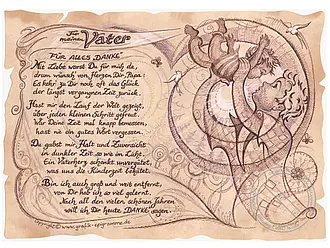 Für
meinen Vater
"FÜR ALLES DANKE"
Mit Liebe warst Du für mich da,
drum wünsch von Herzen Dir, Papa:
Es kehr zu Dir noch oft das Glück
der längst vergangnen Zeit zurück.
Hast mir den Lauf der Welt gezeigt,
über jeden kleinen Schritt gefreut.
War Deine Zeit mal knapp bemessen,
hast nie ein gutes Wort vergessen.
Du gabst mir Halt und Zuversicht
in dunkler Zeit so wie im Licht.
Ein Vaterherz schenkt unvergütet,
was uns die Kinderzeit behütet.
Bin ich auch groß und weit entfernt,
von Dir hab ich so viel gelernt.
Nach all den vielen schönen Jahren
will ich Dir heute "DANKE" sagen.
copyright © www.grafik-epigramme.de